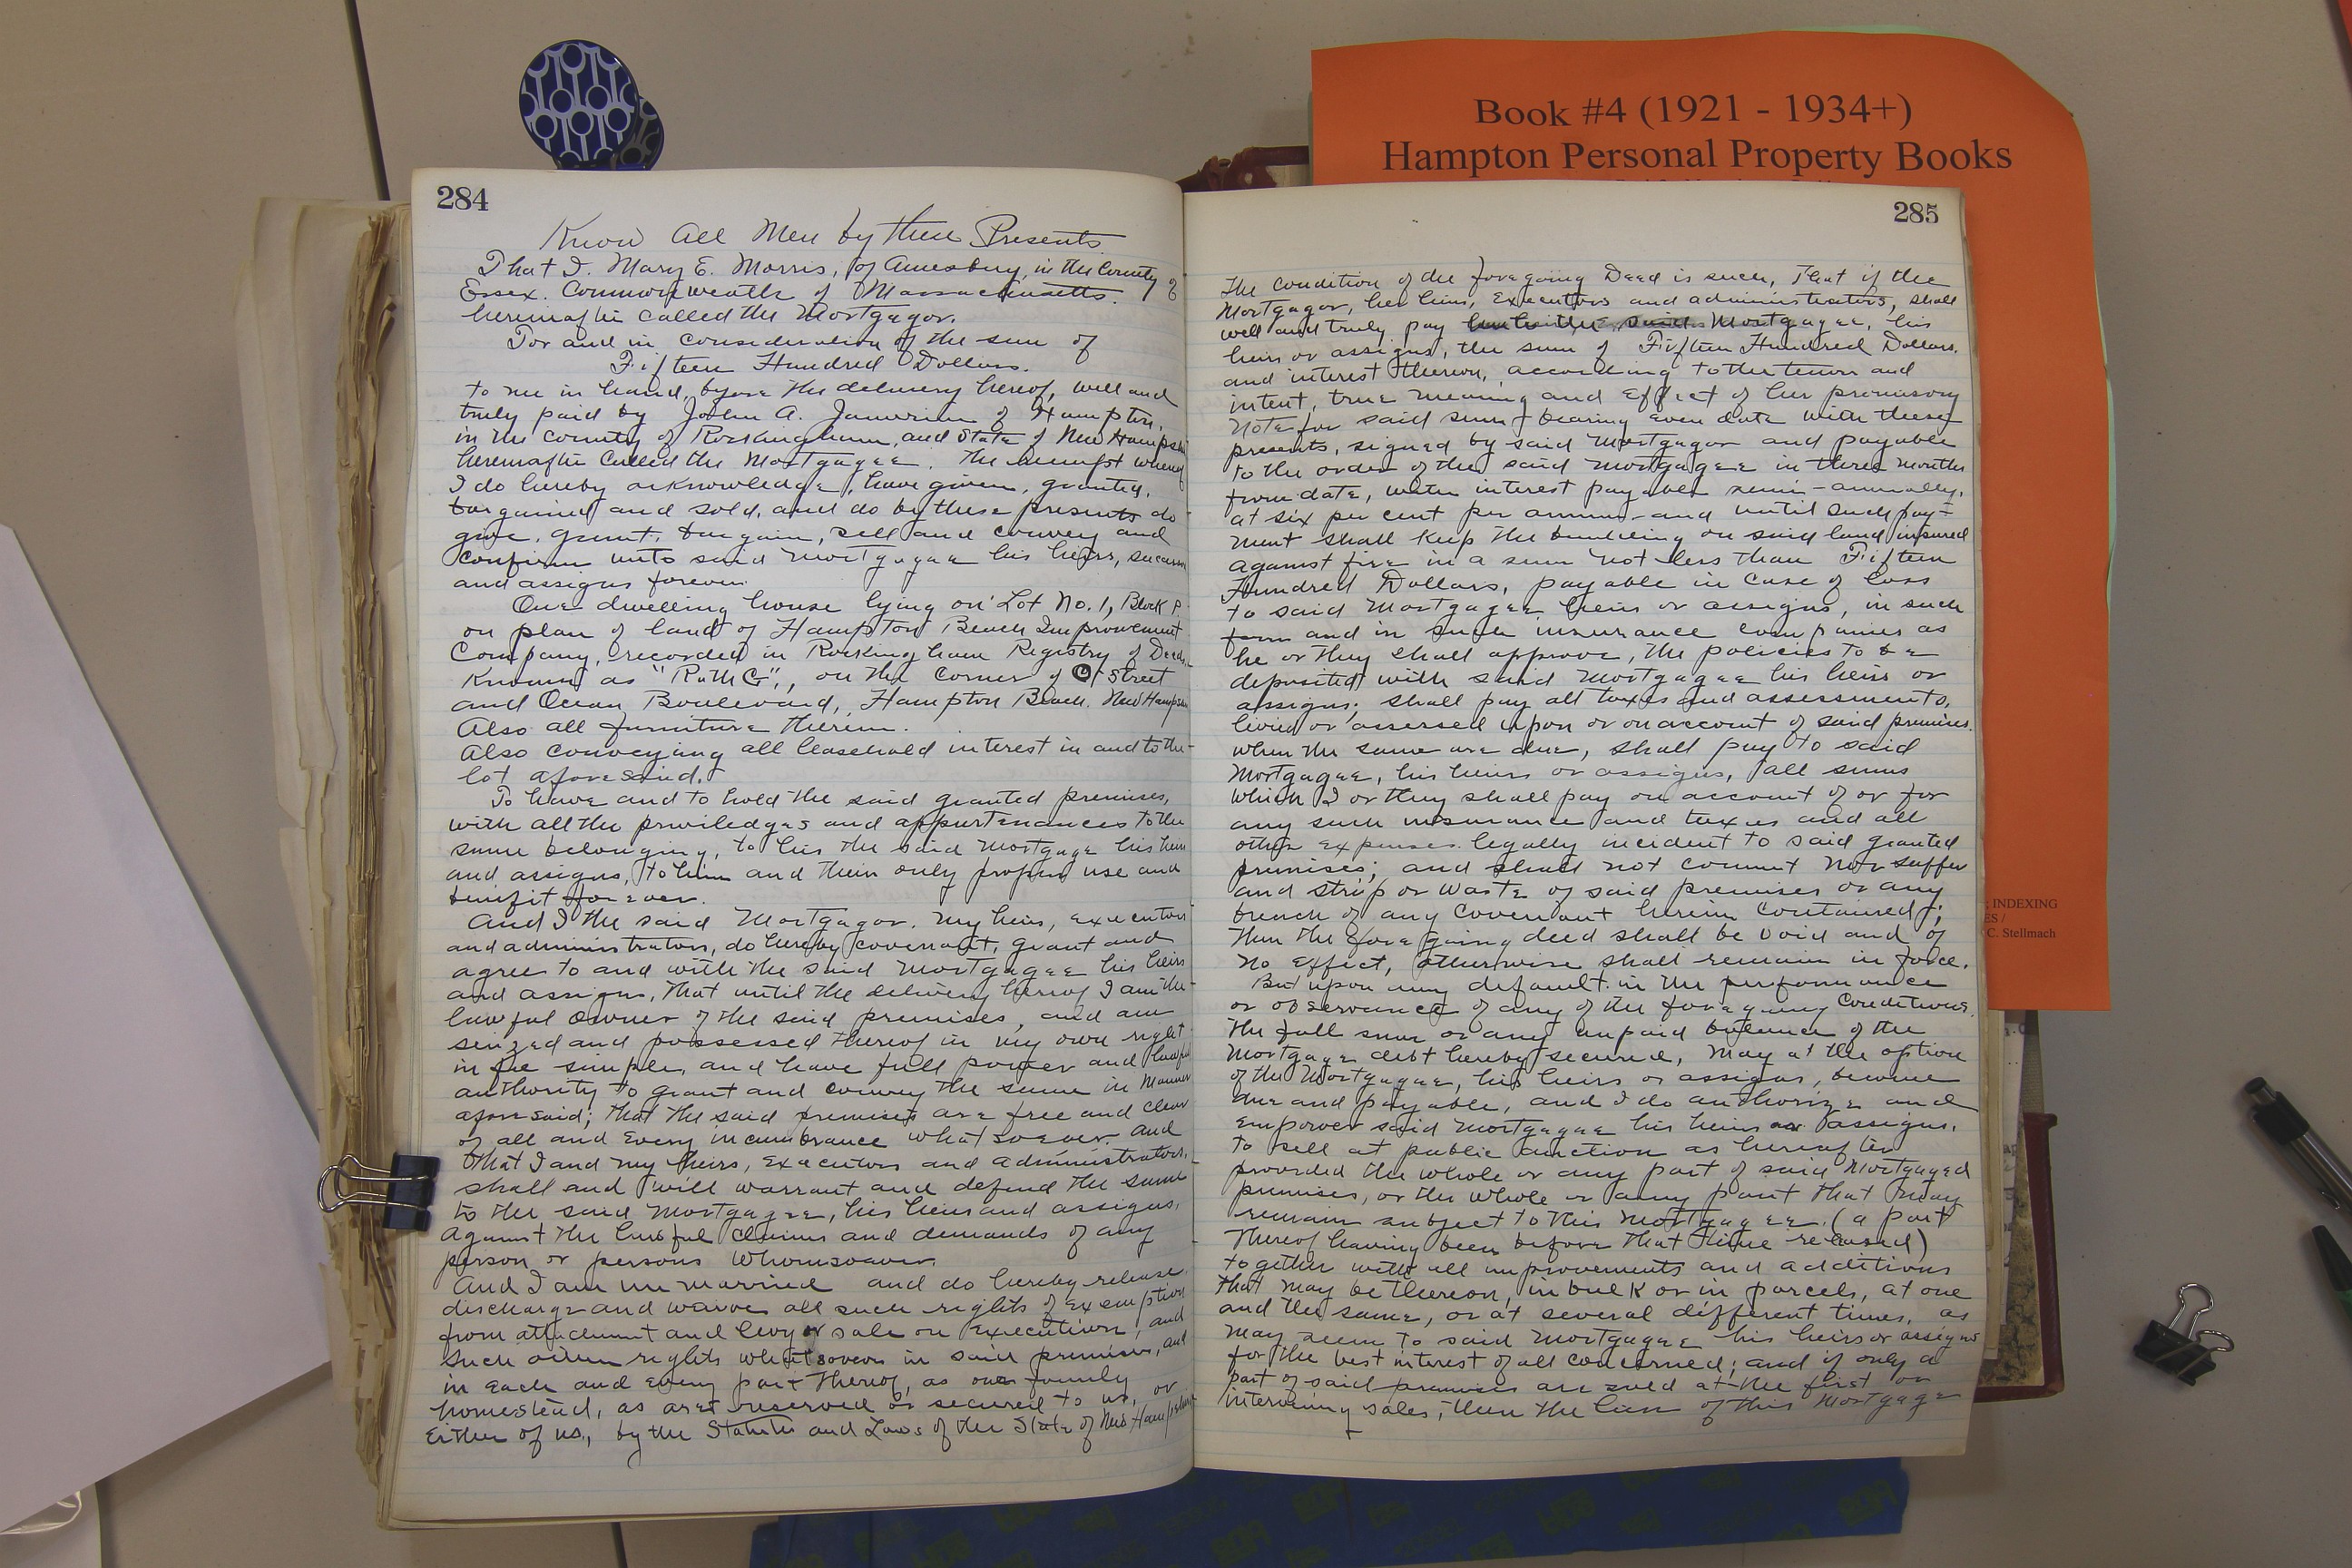 Book #4 (1921 - 1934+)
Hampton Personal Property Books
284
Know All Men by these Presents
That I. Mary E. Morris, of Amesbury, in the County of
Essex. Commonwealth of Massachusetts.
hereinafter called the Mortgagor.
For and in consideration of the sum of
Fifteen Hundred Dollars.
to me in hand, before the delivery hereof, well and
truly paid by John A. Janvrin of Hampton,
in the County of Rockingham, and State of New Hampshi
hereinafter Called the Mortgagee. The receipt whereof
I do hereby acknowledge, have given, granted,
bargained and sold, and do by these presents do
give, grant, bargain, sell and convey and
confirm unto said Mortgagee his heirs, success
and assigns forever.
One dwelling house lying on Lot No. 1, Block P
on plan of land of Hampton Beach Improvement
Company, recorded in Rockingham Registry of Deeds,
Known as "Ruth G", on the Corner of O Street
and Ocean Boulevard, Hampton Beach. New Hampshi
Also all furniture therein.
Also conveying all leasehold interest in and to the
lot aforesaid.
To have and to hold the said granted premises,
with all the priviledges and appurtenances to the
same belonging, to his the said Mortgage his heirs
and assigns, to him and their only proper use and
benefit forever.
And I the said Mortgagor. My heirs, executors
and administrators, do hereby covenant, grant and
agree to and with the said Mortgagee his heirs
and assigns, that until the delivery hereof I am the
lawful Owner of the said premises, and am
seized and possessed thereof in my own right
in fee simple, and have full power and lawful
authority to grant and convey the same in Manner
aforesaid; that the said premises are free and clear
of all and Every incumbrance whatsoever. and
that I and my heirs, executors and administrators,
shall and will warrant and defend the same
to the said Mortgagee, his heirs and assigns.
Against the lawful claims and demands of any
person or persons Whomsoever.
And I am un married and do hereby release
discharge and waive all such rights of Exemption
from attachment and levy or sale on Execution, and
such other rights whatsoever in said premises, and
in Each and Every part thereof, as our family
homestead, as are reserved or secured to us, or
Either of us, by the Statutes and Laws of the State of New Hampshire
285
The Condition of the foregoing Deed is such, That if the
Mortgagor, her heirs, Executors and administrators, shall
well and truly pay said Mortgagee, his
heirs or assigns, the sum of Fifteen Hundred Dollars.
and interest thereon, according to the tenor and
intent, true meaning and Effect of her promissory
Note for said sum bearing Even date with these
presents, signed by said Mortgagor and payable
to the order of the said Mortgagee in three months
from date, with interest payable semi-annually,
at six per cent per annum - and until such pay-
ment shall Keep the building on said land insured
against fire in a sum not less than Fifteen
Hundred Dollars, payable in Case of loss
to said Mortgagee heirs or assigns, in such
form and in such insurance companies as
he or they shall approve, the policies to be
deposited with said Mortgagee his heirs or
assigns; shall pay all taxes and assessments,
levied or assessed upon or on account of said premises.
when the same are due, shall pay to said
Mortgagee, his heirs or assigns, all sums
which I or they shall pay on account of or for
any such insurance and taxes and all
other Expenses legally incident to said granted
premises; and shall not commit nor suffer
and strip or waste of said premises or any
breach of any Covenant herein Contained;
then the foregoing deed shall be void and of
no Effect, otherwise shall remain in force.
But upon any default in the performance
or observance of any of the foregoing Conditions,
the full sum or any unpaid balance of the
Mortgage debt hereby secured, May at the option
of the Mortgagee, his heirs or assigns, become
due and payable, and I do authorize and
Empower said Mortgagee his heirs or assigns.
to sell at public auction as hereafter
provided the whole or any part of said Mortgaged
premises, or the whole or any part that may
remain subject to this Mortgagee (a part
thereof having been before that time released)
together with all improvements and additions
that may be thereon, in bulk or in parcels, at one
and the same, or at several different times, as
may seem to said Mortgagee his heirs or assigns
for the best interest of all concerned; and if only a
part of said premises are sold at the first or
intervening sales, then the lien of this Mortgage
INDEXING
ES /
C. Stellmach